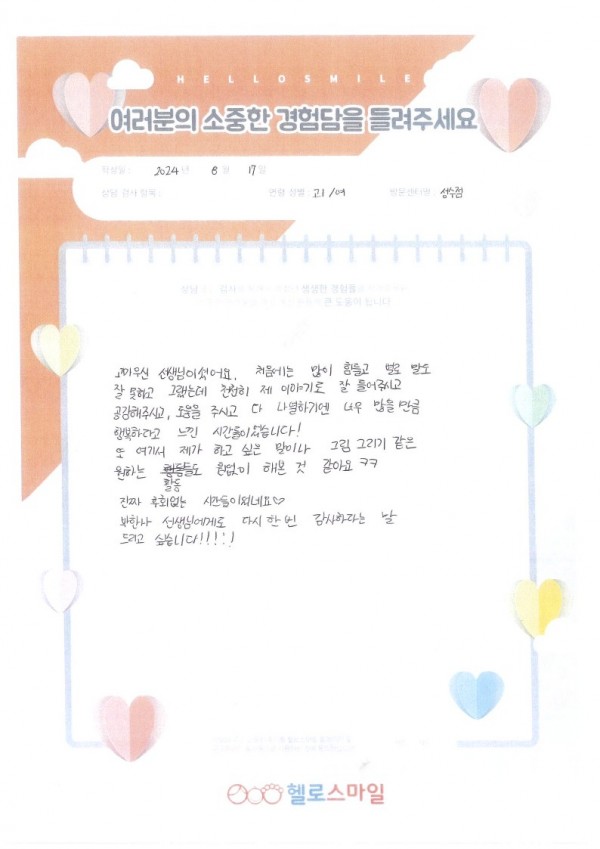 HELLOSMILE
여러분의 소중한 경험담을 들려주세요
작성일: 2024년 8월 17일
상담 검사 항목: 연령 성별 고1/여 방문센터명 성수점
선생님이셨어요. 처음에는 많이 힘들고 말도
잘 못하고 그랬는데 천천히 제 이야기도 잘 들어주시고
공감해주시고, 도움을 주시고 다 나열하기엔 너무 많을 만큼
행복하다고 느낀 시간들이었습니다!
또 여기서 제가 하고 싶은 말이나 그림 그리기 같은
원하는 활동들도 원없이 해본 것 같아요 ㅋㅋ
진짜 후회없는 시간들이었네요♡
선생님에게도 다시 한 번 감사하다는 말
드리고 싶습니다!!!!!
헬로스마일